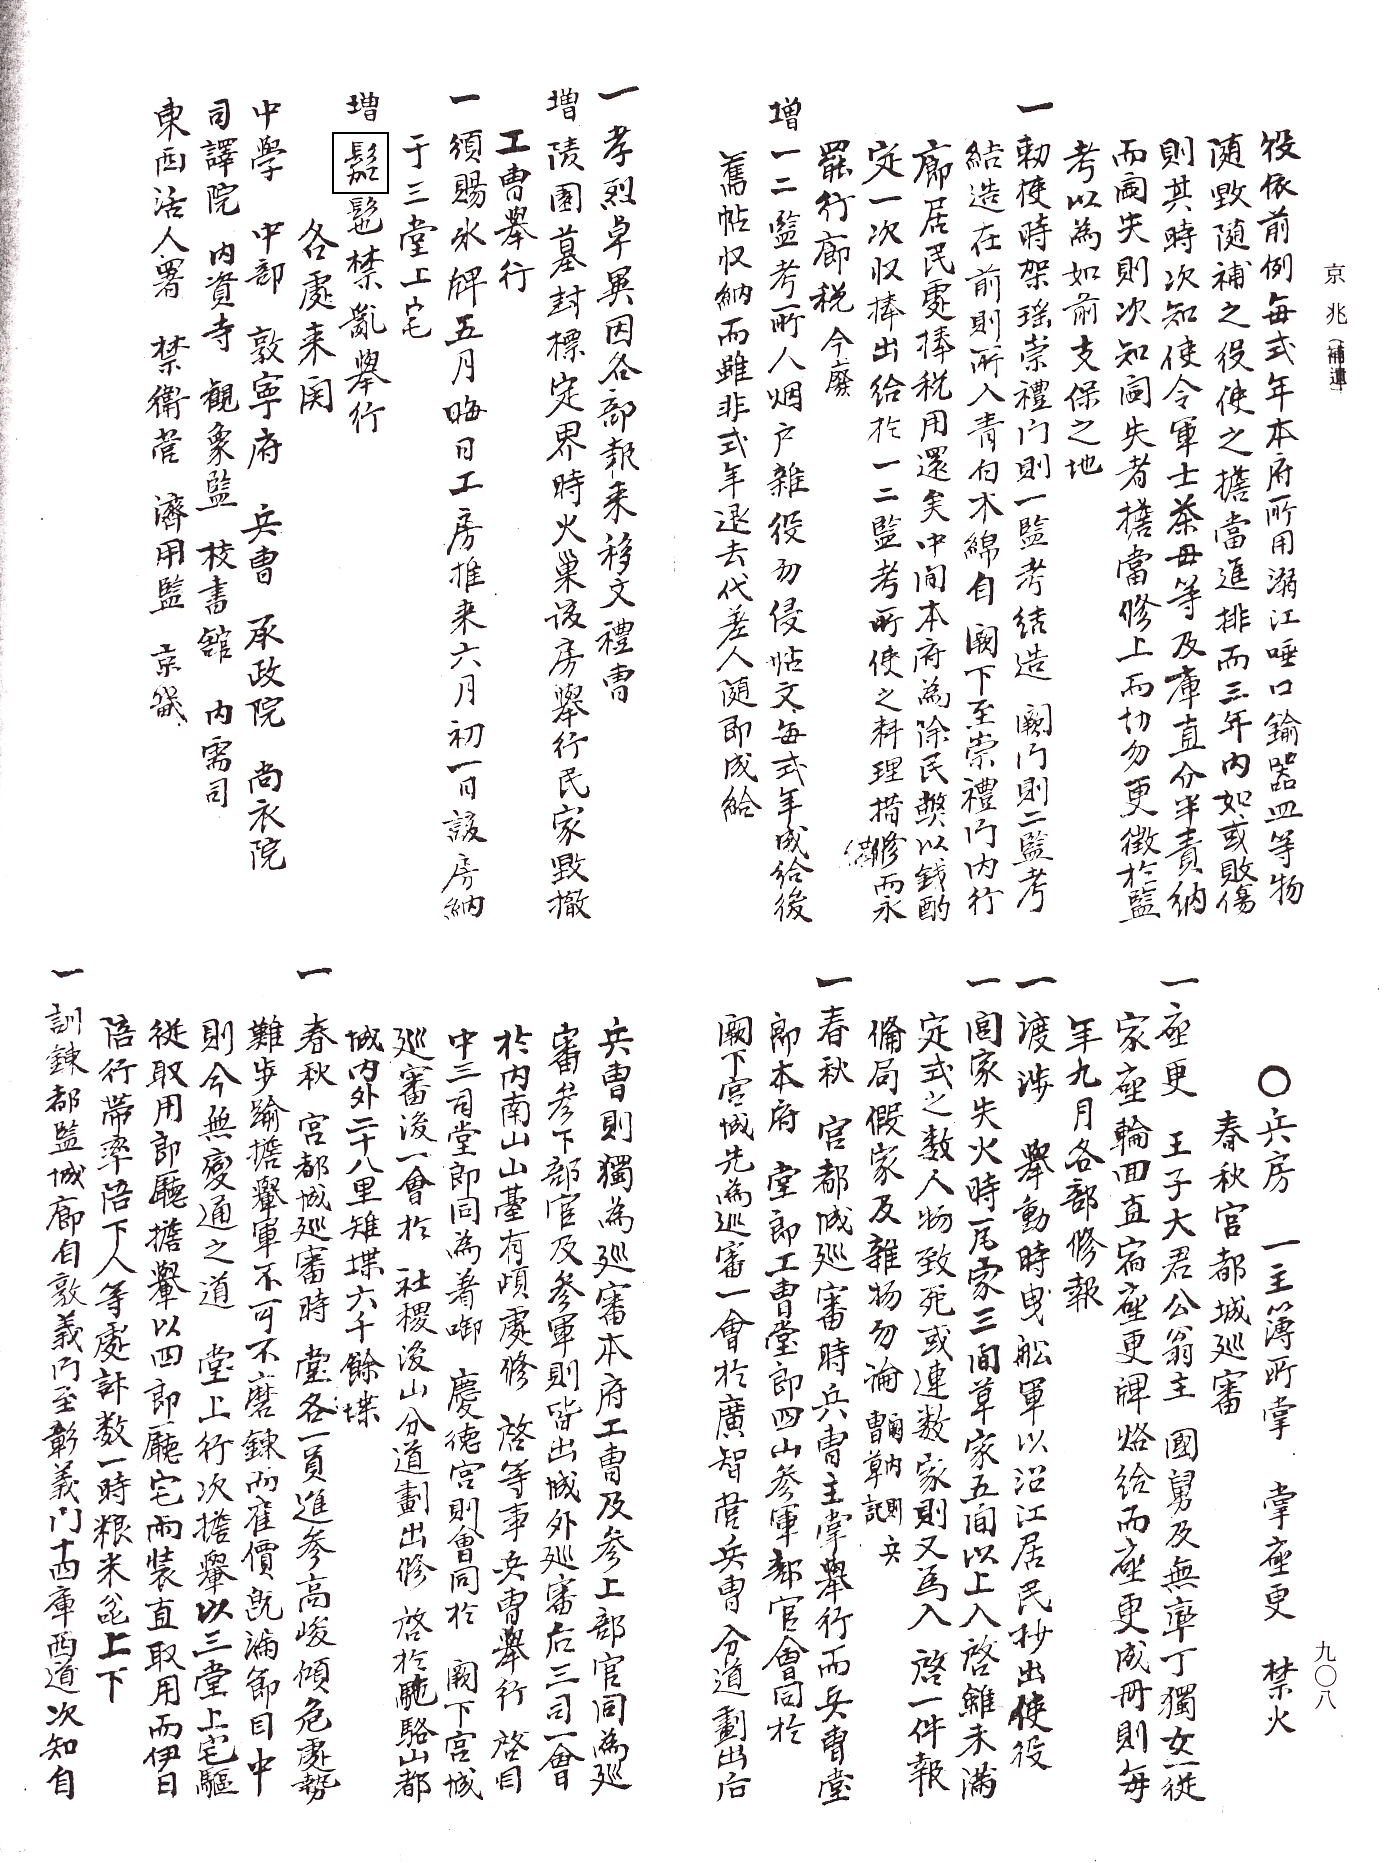 京兆（補遺）
役依前例每式年本府所用溺江唾口鍮器皿等物
随毁随補之役使之擔當進排而三年內如或敗傷
則其時次知使令軍士茶母等及庫直分半責納
而閪失則次知閪失者擔當修上而切勿更徵於監
考以為如前支保之地
一 勅使時架瑤崇禮门則一監考結造 闕门則二監考
結造在前則所入青白木綿自 闕下至崇禮门內行
廊居民處捧税用還矣中间本府為除民獘以錢酌
定一次収捧出給於一二監考所使之料理措備修而永
罷行廊税 今廢
增 一二監考所人烟户雜役勿侵帖文每式年成給後
舊帖収納而雖非式年退去代差人随即成給
一 孝烈卓異因各部報来移文禮曹
增 陵園墓封標定界時火巢該房舉行民家毁撤
工曹舉行
一 頒賜氷牌五月晦日工房推来六月初一日該房納
于三堂上宅
增 髢禁亂舉行
各處来関
中學 中部 敦寧府 兵曹 承政院 尚衣院
司譯院 內資寺 觀象監 校書館 內需司
東西活人署 禁衛营 濟用監 京畿
九〇八
〇兵房 一主簿所掌 掌座更 禁火
春秋宮都城巡審
一 座更 王子大君公翁主 國舅及無率丁獨女一從
家座輪回直宿座更牌烙給而座更成冊則每
年九月各部修報
一 渡涉 舉動時曳舩軍以沿江居民抄出使役
一 閭家失火時瓦家三间草家五间以上入啓雖未滿
定式之数人物致死或連数家則又為入 啓一件報
備局假家及雜物勿論 闕內則兵曹草記
一 春秋 宮都城巡審時兵曹主掌舉行而兵曹堂
郎本府 堂郎工曹堂郎四山參軍部官會同於
闕下宮城先為巡審一會於廣智营兵曹分道劃出后
兵曹則獨為巡審本府工曹及參上部官同為巡
審參下部官及參軍則皆出城外巡審后三司一會
於內南山山基有頉處修 啓等事兵曹舉行 啓目
中三司堂郎同為着啣 慶德宮則會同於 闕下宮城
巡審後一會於 社稷後山分道劃出修 啓於駞駱山都
城內外二十八里雉堞六千餘堞
一 春秋 宮都城巡審時 堂各一員進參高峻傾危處勢
難步踰擔轝軍不可不磨鍊而雇價既滿節目中
則今無變通之道 堂上行次擔轝以三堂上宅驅
從取用郎廳擔轝以四郎廳宅両裝直取用而伊日
陪行帶率陪下人等處計数一時粮米從上下
一 訓鍊都監城廊自敦義门至彰義门十四庫西道次知自